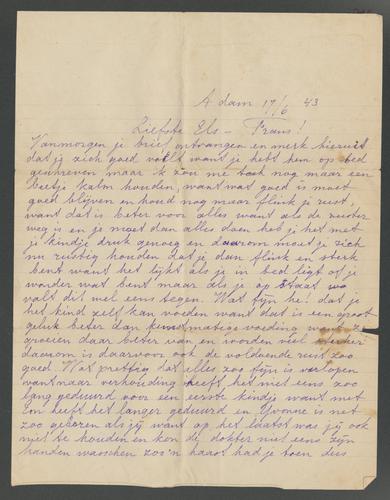 A dam 17/6 43
Liefste Els – Frans!
Vanmorgen je brief ontvangen en merk hieruit
dat je zich goed voelt want je hebt hem op bed
geschreven maar ik zou me toch nog maar een
beetje kalm houden, want wat goed is moet
goed blijven en houd nog maar flink je rust,
want dat is beter voor alles want als de zuster
weg is en je moet dan alles doen heb je het met
je kindje druk genoeg en daarom moet je zich
nu rustig houden dat je dan flink en sterk
bent want het lijkt als je in bed ligt of je
wonder wat bent maar als je op staat
valt dit wel eens tegen. Wat fijn he! dat je
het kind zelf kan voeden want dat is een groot
geluk beter dan kunstmatige voeding want ze
groeien daar beter van en worden veel sterker
daarom is daarvoor ook de voldoende rust zoo
goed. Wat prettig dat alles zoo fijn is verlopen
want naar verhouding heeft het niet eens zoo
lang geduurd voor een eerste kindje want met
ton heeft het langer geduurd en Yvonne is net
zoo geboren als jij want op het laatst was jij ook
niet te houden en kon de dokter niet eens zijn
handen wasschen zoo'n haast had je toen dus